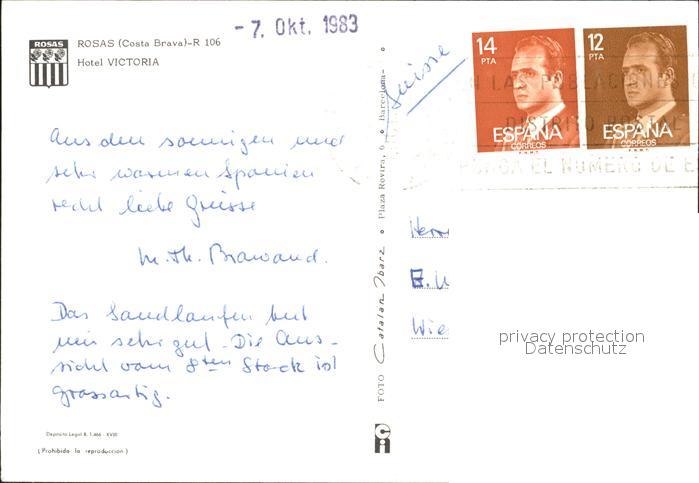 - 7. Okt. 1983
ROSAS
ROSAS (Costa Brava)-R 106
Hotel VICTORIA
Suisse
14 PTA
ESPAÑA
CORREOS
F.N.M.T.
12 PTA
ESPAÑA
CORREOS
F.N.M.T.
DISTRITO POSTAL
EL NUMERO DE
Aus dem sonnigen und
sehr warmen Spanien
recht liebe Grüsse
M. Th. Brawand.
Das Sandlaufen tut
mir sehr gut. Die Aus-
sicht vom 8ten Stock ist
grossartig.
Herrn
Wie
privacy protection
Datenschutz
FOTO Catalan Ibarz • Plaza Rovira, 6 • Barcelona-
Depósito Legal B. 1.466 - XVIII
(Prohibida la reproducción)